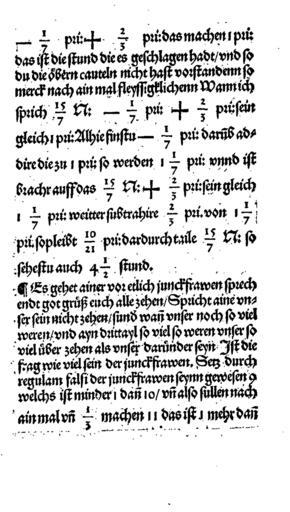 — 1/7 pri: + 2/3 pri: das machen 1 pri:
das ist die stund die es geschlagen hadt/vnd so
du die öbern cauteln nicht hast vorstandenn so
merck nach ain mal fleyssigklichenn Wann ich
sprich 15/7 N: — 1/7 pri: + 2/3 pri: sein
gleich 1 pri: Alhie finstu — 1/7 pri: darüb ad-
dire die zu 1 pri: so werden 1 1/7 pri: vnnd ist
bracht auff das 15/7 N: + 2/3 pri: sein gleich
1 1/7 pri: weitter subtrahire 2/3 pri. von 1 1/7
pri. so pleibt 10/21 pri: dardurch taile 15/7 N: so
sehestu auch 4 1/2 stund.
¶ Es gehet ainer vor etlich junckfrawen sprech
endt got grüß euch alle zehen/Spricht aine vn-
ser sein nicht zehen/sund wañ vnser noch so viel
weren/vnd ayn drittayl so viel so weren vnser so
viel über zehen als vnser daründer seyn Ist die
frag wie viel sein der junckfrawen. Setz durch
regulam falsi der junckfrawen seynn gewesen 9
welchs ist minder 1 dañ 10/vñ also süllen nach
ain mal vñ 1/3 machen 11 das ist 1 mehr dañ